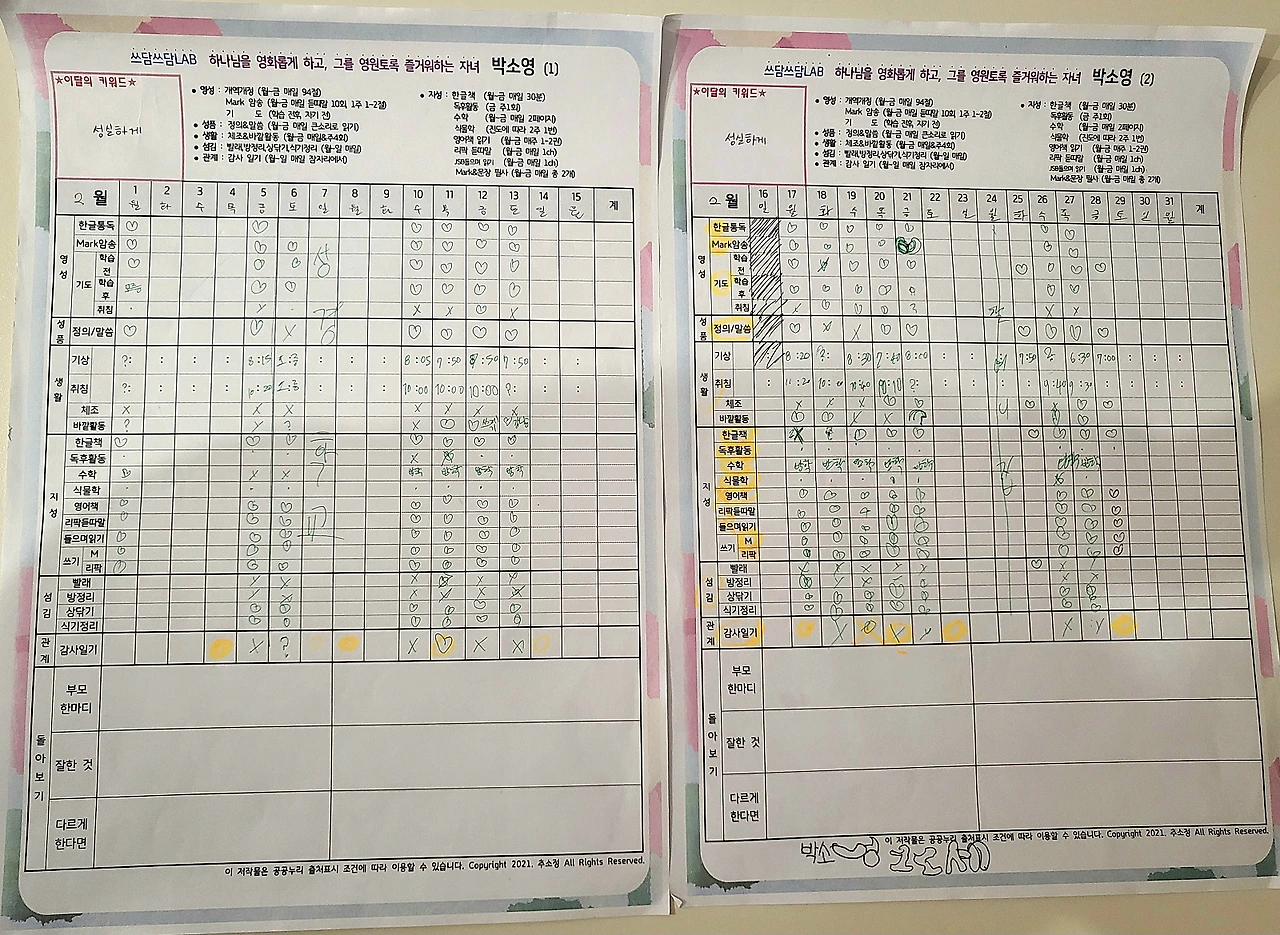 쓰담쓰담LAB 하나님을 영화롭게 하고, 그를 영원토록 즐거워하는 자녀 박소영 (1)
★이달의 키워드★
성실하게
• 영성 : 개역개정 (월~금 매일 94절)
Mark 암송 (월~금 매일 듣따말 10회 1주 1~2절)
기 도 (학습 전후, 자기 전)
• 성품 : 정의&말씀 (월~금 매일 큰소리로 읽기)
• 생활 : 체조&바깥활동 (월~금 매일&주4회)
• 섬김 : 빨래,방정리,상닦기,식기정리 (월~일 매일)
• 관계 : 감사 일기 (월~일 매일 잠자리에서)
• 지성 : 한글책 (월~금 매일 30분)
독후활동 (금 주1회)
수학 (월~금 매일 2페이지)
식물학 (진도에 따라 2주 1번)
영어책 읽기 (월~금 매주 1~2권)
리팍 듣따말 (월~금 매일 1ch)
JSB들으며 읽기 (월~금 매일 1ch)
Mark&문장 필사 (월~금 매일 총 2개)
2 월 1 2 3 4 5 6 7 8 9 10 11 12 13 14 15 계
월 화 수 목 금 토 일 월 화 수 목 금 토 일
영성
한글통독
Mark암송
기도
학습 전
학습 후
취침
성품
정의/말씀
생활
기상 ?: 8:15 8:05 7:50 8:50 7:50
취침 ?: 10:00 10:00 10:00 ?:
체조
바깥활동
지성
한글책
독후활동
수학 방학 방학 방학 방학
식물학
영어책
리팍듣따말
들으며읽기
쓰기
M
리팍
섬김
빨래
방정리
상닦기
식기정리
관계
감사일기
돌아보기
부모 한마디
잘한 것
다르게 한다면
이 저작물은 공공누리 출처표시 조건에 따라 이용할 수 있습니다. Copyright 2021. 추소정 All Rights Reserved.
쓰담쓰담LAB 하나님을 영화롭게 하고, 그를 영원토록 즐거워하는 자녀 박소영 (2)
★이달의 키워드★
성실하게
• 영성 : 개역개정 (월~금 매일 94절)
Mark 암송 (월~금 매일 듣따말 10회 1주 1~2절)
기 도 (학습 전후, 자기 전)
• 성품 : 정의&말씀 (월~금 매일 큰소리로 읽기)
• 생활 : 체조&바깥활동 (월~금 매일&주4회)
• 섬김 : 빨래,방정리,상닦기,식기정리 (월~일 매일)
• 관계 : 감사 일기 (월~일 매일 잠자리에서)
• 지성 : 한글책 (월~금 매일 30분)
독후활동 (금 주1회)
수학 (월~금 매일 2페이지)
식물학 (진도에 따라 2주 1번)
영어책 읽기 (월~금 매주 1~2권)
리팍 듣따말 (월~금 매일 1ch)
JSB들으며 읽기 (월~금 매일 1ch)
Mark&문장 필사 (월~금 매일 총 2개)
2 월 16 17 18 19 20 21 22 23 24 25 26 27 28 29 30 31 계
일 월 화 수 목 금 토 일 월 화 수 목 금 토 일 월
영성
한글통독
Mark암송
기도
학습 전
학습 후
취침
성품
정의/말씀
생활
기상 8:20 ?: 8:30 7:40 8:00 7:50 ? 6:30 7:00
취침 11:20 10:00 10:40 9:10 ?: 9:40 9:30
체조
바깥활동
지성
한글책
독후활동
수학 방학 방학 방학 방학 방학 방학 방학
식물학
영어책
리팍듣따말
들으며읽기
쓰기
M
리팍
섬김
빨래
방정리
상닦기
식기정리
관계
감사일기
돌아보기
부모 한마디
잘한 것
다르게 한다면
이 저작물은 공공누리 출처표시 조건에 따라 이용할 수 있습니다. Copyright 2021. 추소정 All Rights Reserved.